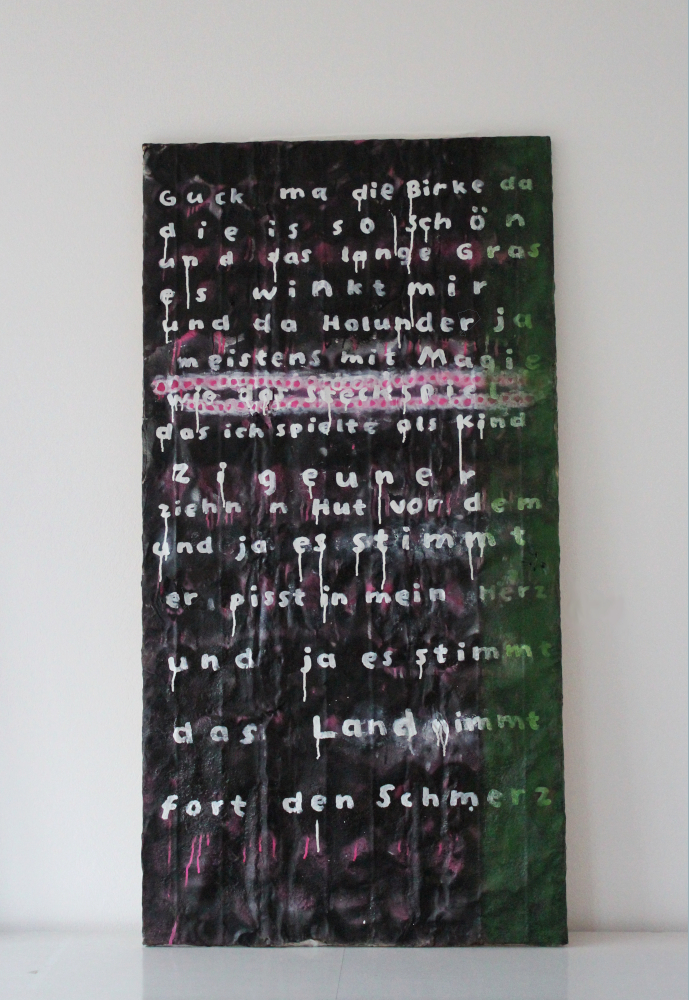 Guck ma die Birke da
die is so schön
und das lange Gras
es winkt mir
und da Holunder ja
meistens mit Magie
wie das
das ich spielte als Kind
Zigeuner
ziehn n Hut vor dem
und ja es stimmt
er pisst in mein Herz
und ja es stimmt
das Land nimmt
fort den Schmerz